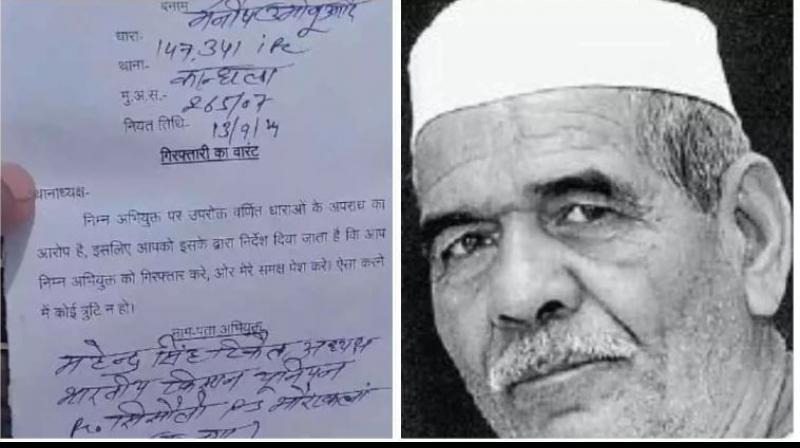 बनाम
धारा- 147, 341 iPC
थाना- कान्धला
मु.अ.स.- 265/07
नियत तिथि- 13/9/24
गिरफ्तारी का वारंट
थानाध्यक्ष-
निम्न अभियुक्त पर उपरोक्त वर्णित धाराओं के अपराध का
आरोप है, इसलिए आपको इसके द्वारा निर्देश दिया जाता है कि आप
निम्न अभियुक्त को गिरफ्तार करे, ओर मेरे समक्ष पेश करे। ऐसा करने
में कोई त्रुटि न हो।
नाम-पता अभियुक्त
महेन्द्र सिंह टिकैत अध्यक्ष
भारतीय किसान यूनियन
सिसौली PS भौराकलां